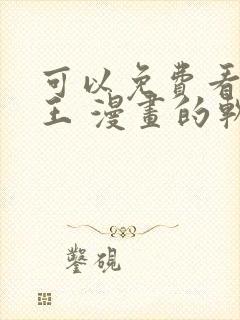 可以免費看
王 漫畫的軟
鑿硯